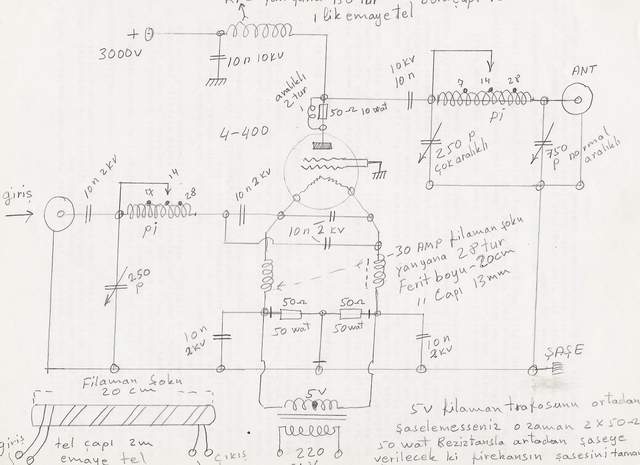 1 lik emaye tel
+
3000v
10n 10kv
aralıklı
2 tur
50Ω 10 wat
4-400
10kv
10n
7 14 28
Pi
ANT
250 P
çok aralıklı
750
P normal
aralıklı
giriş
10n 2kv
7 14 28
Pi
10n 2kv
250
P
10n 2 kv
30 AMP filaman şoku
yanyana 28 tur
Ferit boyu - 20cm
" Çapı 13mm
50Ω 50Ω
50 wat 50wat
10n
2kv
10n
2kv
ŞAŞE
Filaman şoku
20 cm
5v
giriş
tel çapı 2m
emaye tel
çıkış
220
5V filaman trafosunu ortadan
şaselemesseniz o zaman 2 x 50Ω
50 wat Rezistansla ortadan şaseye
verilecek ki pirekansın şasesini tamam